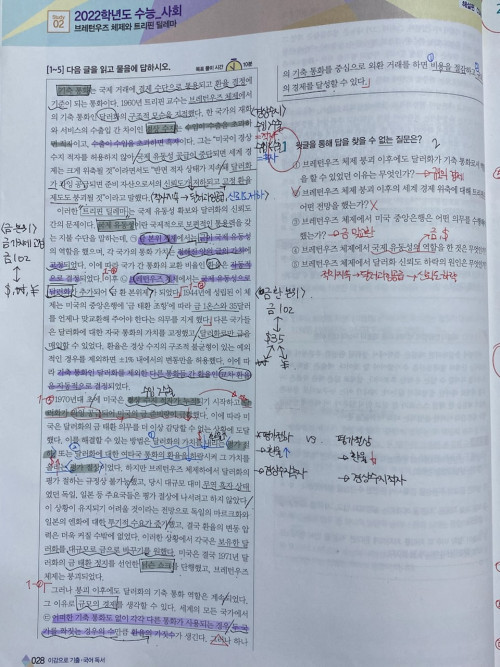 Study
02
2022학년도 수능_사회
브레턴우즈 체제와 트리핀 딜레마
[1~5] 다음 글을 읽고 물음에 답하시오.
기축 통화는 국제 거래에 결제 수단으로 통용되고 환율 결정에
기준이 되는 통화이다. 1960년 트리핀 교수는 브레턴우즈 체제에서
의 기축 통화인 달러화의 구조적 모순을 지적했다. 한 국가의 재화
와 서비스의 수출입 간 차이인 경상 수지는 수입이 수출을 초과하
면 적자이고, 수출이 수입을 초과하면 흑자이다. 그는 "미국이 경상
수지 적자를 허용하지 않아 국제 유동성 공급이 중단되면 세계 경
제는 크게 위축될 것"이라면서도 "반면 적자 상태가 지속돼 달러화
가 과잉 공급되면 준비 자산으로서의 신뢰도가 저하되고 고정 환율
제도도 붕괴될 것"이라고 말했다.
이러한 '트리핀 딜레마'는 국제 유동성 확보와 달러화의 신뢰도
간의 문제이다. 국제 유동성이란 국제적으로 보편적인 통용력을 갖
는 지불 수단을 말하는데,
의 역할을 했으며, 각 국가의 통화
정되었다. 이에 따라 국가 간 통화의 교환 비율인 환율은 자동적
으로 결정되었다. 이후
달러화가 추가되어
제는 미국의 중앙은행에 '금 태환 조항'에 따라 금 1온스와 35달러
를 언제나 맞교환해 주어야 한다는 의무를 지게 했다. 다른 국가들
은 달러화에 대한 자국 통화의 가치를 고정했고, 달러화로만 금을
매입할 수 있었다. 환율은 경상 수지의 구조적 불균형이 있는 예외
적인 경우를 제외하면 ±1% 내에서의 변동만을 허용했다. 이에 따
라 기축 통화인 달러화를 제외한 다른 통화들 간 환율인 교차 환율
은 자동적으로 결정되었다.
1970년대 초에 미국은 경상 수지 적자가 누적되기 시작하고 달
러화가 과잉 공급되어 미국의 금 준비량이 급감했다. 이에 따라 미
국은 달러화의 금 태환 의무를 더 이상 감당할 수 없는 상황에 도달
했다. 이를 해결할 수 있는 방법은 달러화의 가치를 내리는 평가 절
하, 또는 달러화에 대한 여타국 통화의 환율을 하락시켜 그 가치를
올리는 평가 절상이었다. 하지만 브레턴우즈 체제하에서 달러화의
평가 절하는 규정상 불가능했고, 당시 대규모 대미 무역 흑자 상태
였던 독일, 일본 등 주요국들은 평가 절상에 나서려고 하지 않았다.
이 상황이 유지되기 어려울 것이라는 전망으로 독일의 마르크화와
일본의 엔화에 대한 투기적 수요가 증가했고, 결국 환율의 변동 압
력은 더욱 커질 수밖에 없었다. 이러한 상황에서 각국은 보유한 달
러화를 대규모로 금으로 바꾸기를 원했다. 미국은 결국 1971년 달
러화의 금 태환 정지를 선언한 닉슨 쇼크를 단행했고, 브레턴우즈
체제는 붕괴되었다.
그러나 붕괴 이후에도 달러화의 기축 통화 역할은 계속되었다.
그 이유로 규모의 경제를 생각할 수 있다. 세계의 모든 국가에서
㉢ 어떠한 기축 통화도 없이 각각 다른 통화가 사용되는 경우 두 국
가를 짝짓는 경우의 수만큼 환율의 가짓수가 생긴다. 그러나 하나
의 기축 통화를 중심으로 외환 거래를 하면 비용을 절감하고 규모
의 경제를 달성할 수 있다.
1 윗글을 통해 답을 찾을 수 없는 질문은?
① 브레턴우즈 체제 붕괴 이후에도 달러화가 기축 통화로서
할 수 있었던 이유는 무엇인가?
② 브레턴우즈 체제 붕괴 이후의 세계 경제 위축에 대해 트리핀
어떤 전망을 했는가?
③ 브레턴우즈 체제에서 미국 중앙은행은 어떤 의무를 수행해
했는가?
④ 브레턴우즈 체제에서 국제 유동성의 역할을 한 것은 무엇인
⑤ 브레턴우즈 체제에서 달러화 신뢰도 하락의 원인은 무엇인가
금 1oz
$35
평가절하 vs 평가절상
028 이감으로 기출·국어 독서